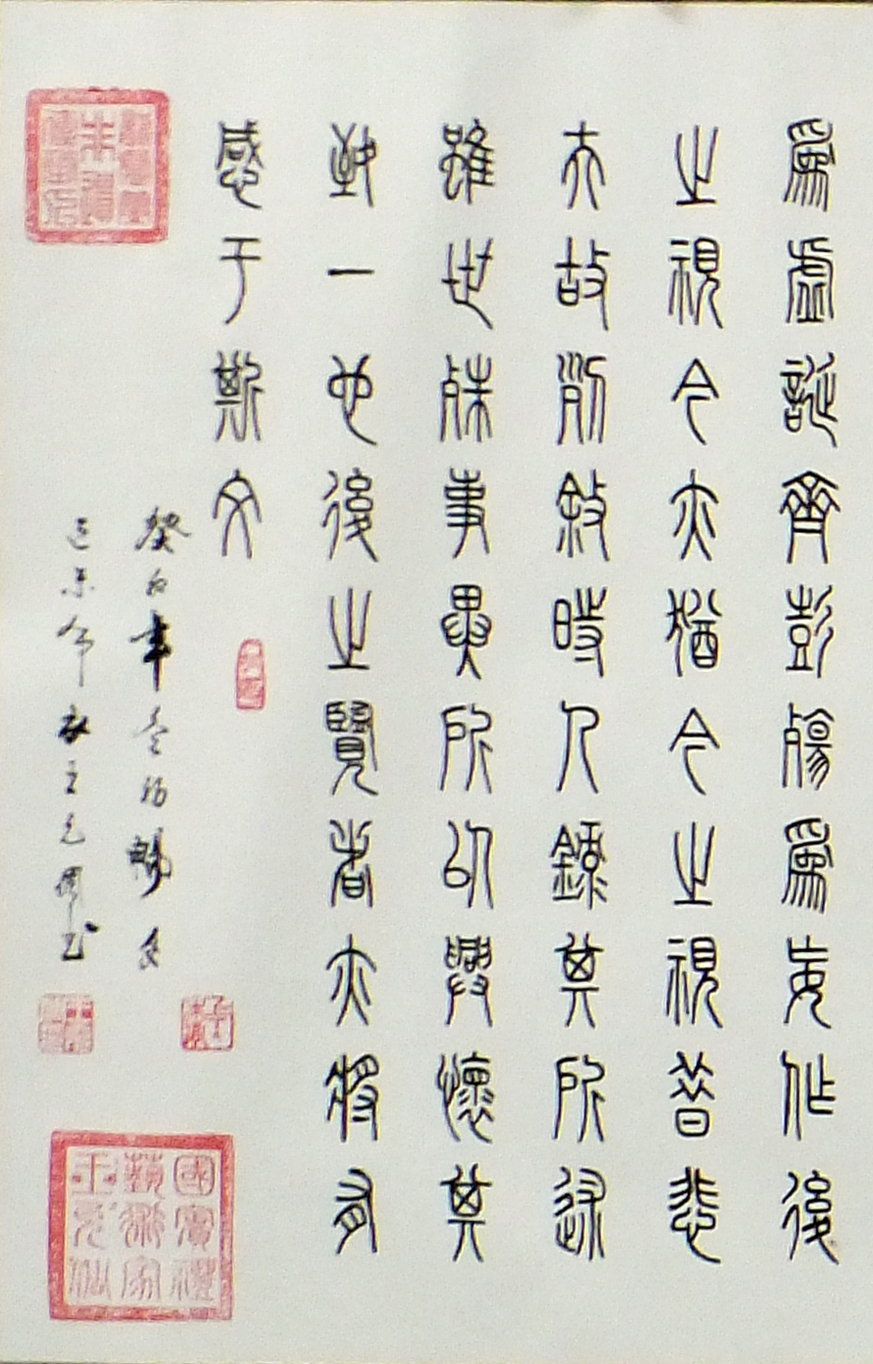 爲虛誕齊彭殤爲妄作後
之視今亦猶今之視昔悲
夫故列敘時人錄其所述
雖世殊事異所以興懷其
致一也後之覽者亦將有
感于斯文
癸年
布衣
國賓禮
藝術家